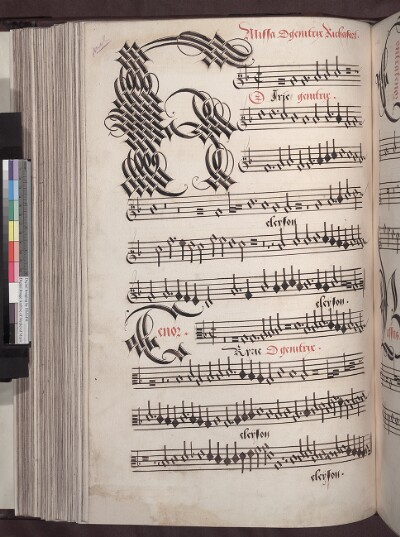 Missa O genitrix Richafort.
K
O irie genitrix.
eleyson
eleyson.
Tenor.
Kyrie O genitrix.
eleyson
eleyson.